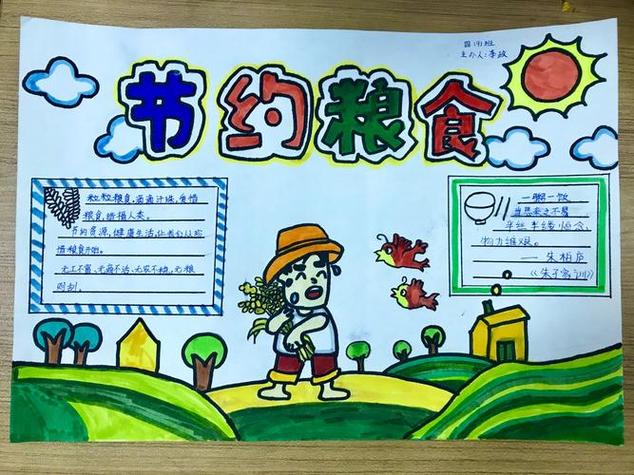 四(1)班
主办人:李政
节约粮食
粒粒粮食,滴滴汗珠,爱惜
粮食,造福人类。
节约资源,健康生活,让我们从珍
惜粮食开始。
无工不富,无商不活,无农不稳,无粮
则乱。
一粥一饭
当思来之不易
半丝半缕恒念
物力维艰。
——朱柏庐
《朱子家训》